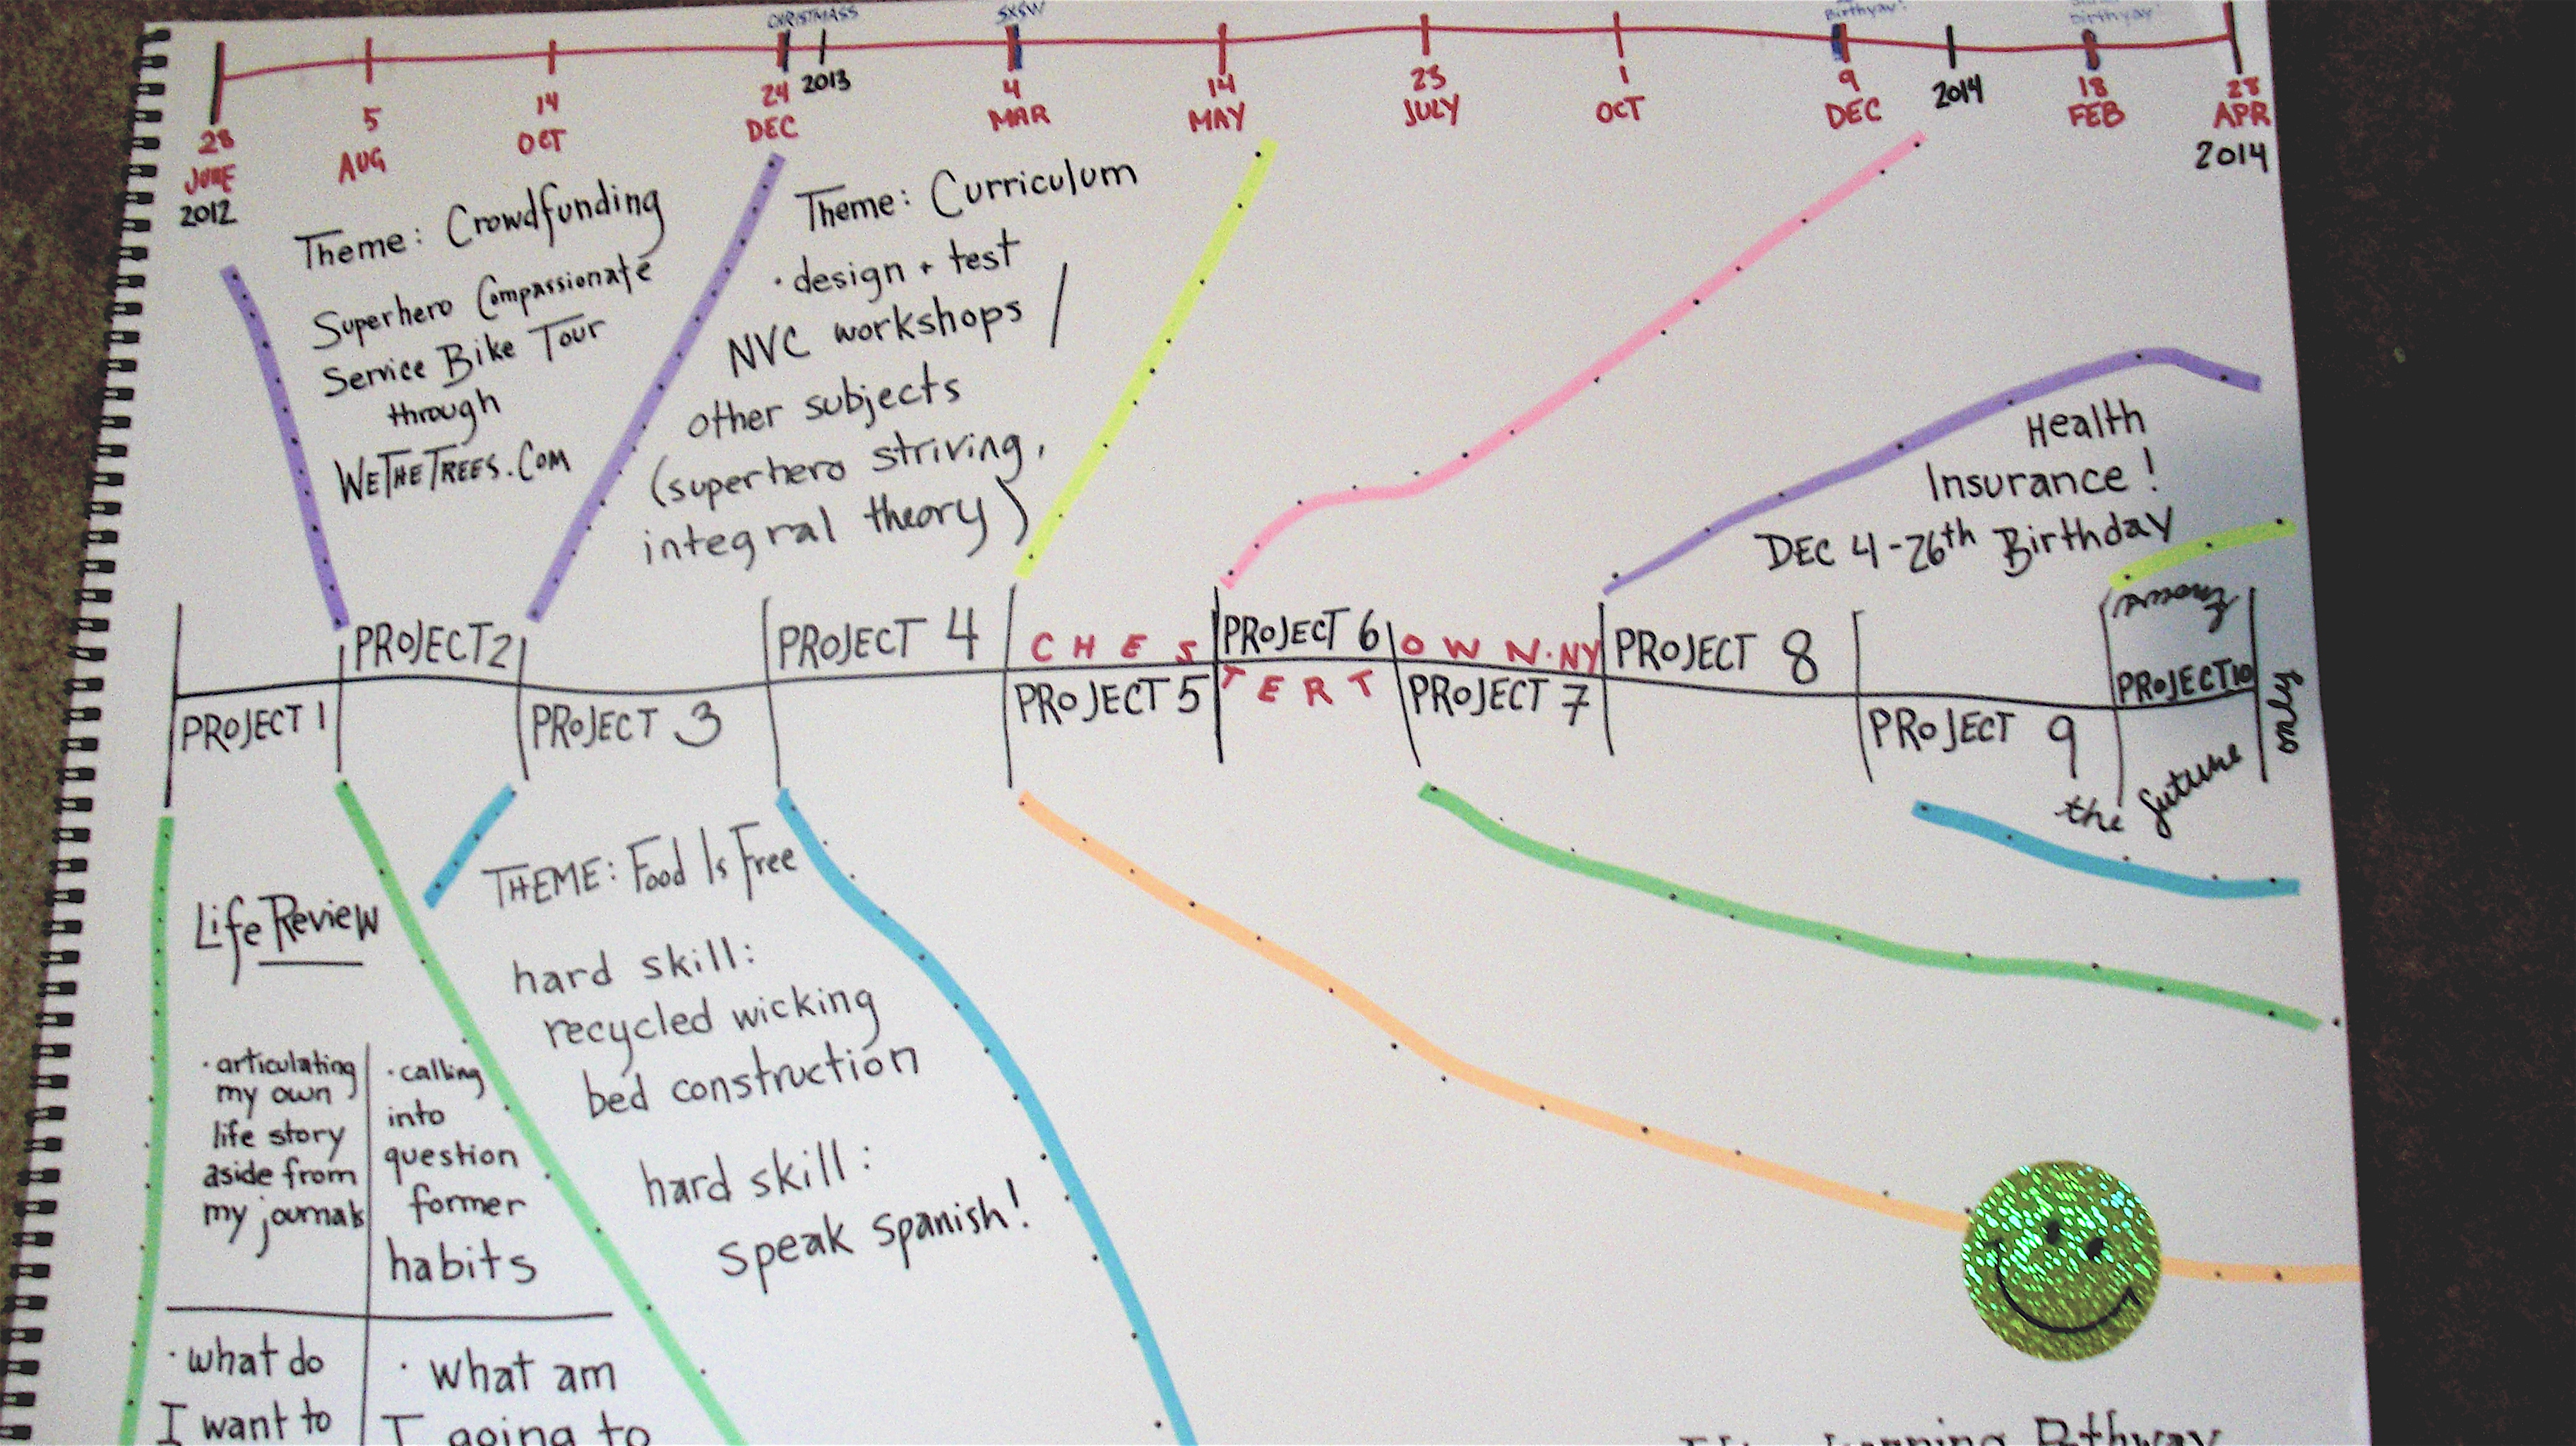 CHRISTMASS
SXSW
Birthyay!
birthyay!
28
JUNE
2012
5
AUG
14
OCT
24
DEC
2013
4
MAR
14
MAY
23
JULY
1
OCT
9
DEC
2014
18
FEB
28
APR
2014
Theme: Crowdfunding
Superhero Compassionate
Service Bike Tour
through
WETHETREES.COM
Theme: Curriculum
· design + test
NVC workshops /
other subjects
(superhero striving,
integral theory)
Health
Insurance!
DEC 4 - 26th Birthday
PROJECT 1
PROJECT 2
PROJECT 3
PROJECT 4
CHES
PROJECT 5
PROJECT 6
TERT
OWN·NY
PROJECT 7
PROJECT 8
PROJECT 9
PROJECT 10
only
the future
knows
Life Review
· articulating
my own
life story
aside from
my journals
· calling
into
question
former
habits
· what do
I want to
· what am
I going to
THEME: Food Is Free
hard skill:
recycled wicking
bed construction
hard skill:
speak spanish!
Learning Pathway